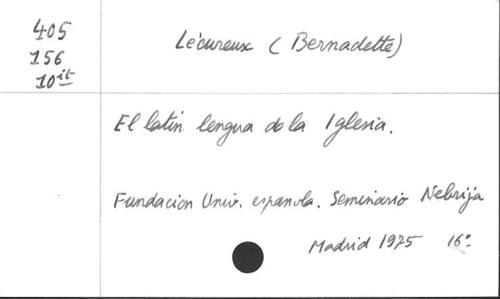 405
156
10it
Lécureux (Bernadette)
El latin lengua de la Iglesia.
Fundacion Univ. espanola. Seminario Nebrija
Madrid 1975 16°